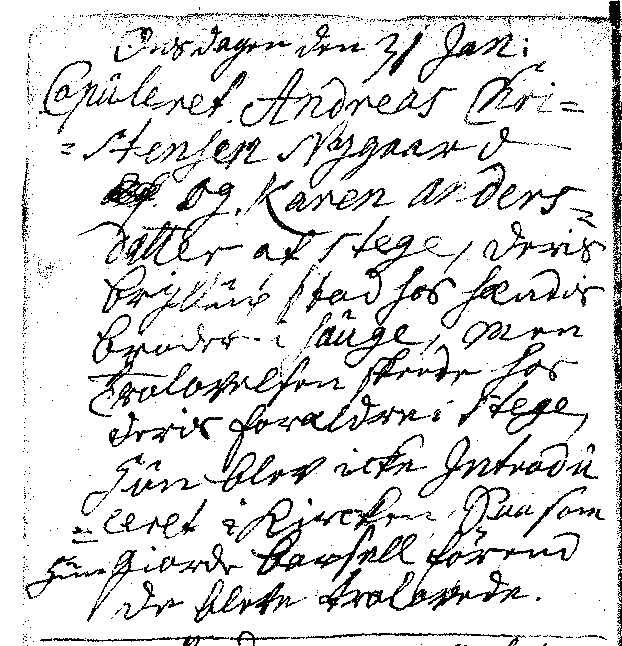 Onsdagen den 31 Jan:
Copuleret Andreas Chri=
=stensen Nygaard
og Karen Anders=
datter af Stege, deris
bryllup stod hos hendis
broder i Hauge, men
Trolovelsen skeede hos
deris forældre i Stege,
Hun blev icke Introdu
=ceret i Kircken, Saasom
Hun giorde barsell førend
de bleve trolovede.